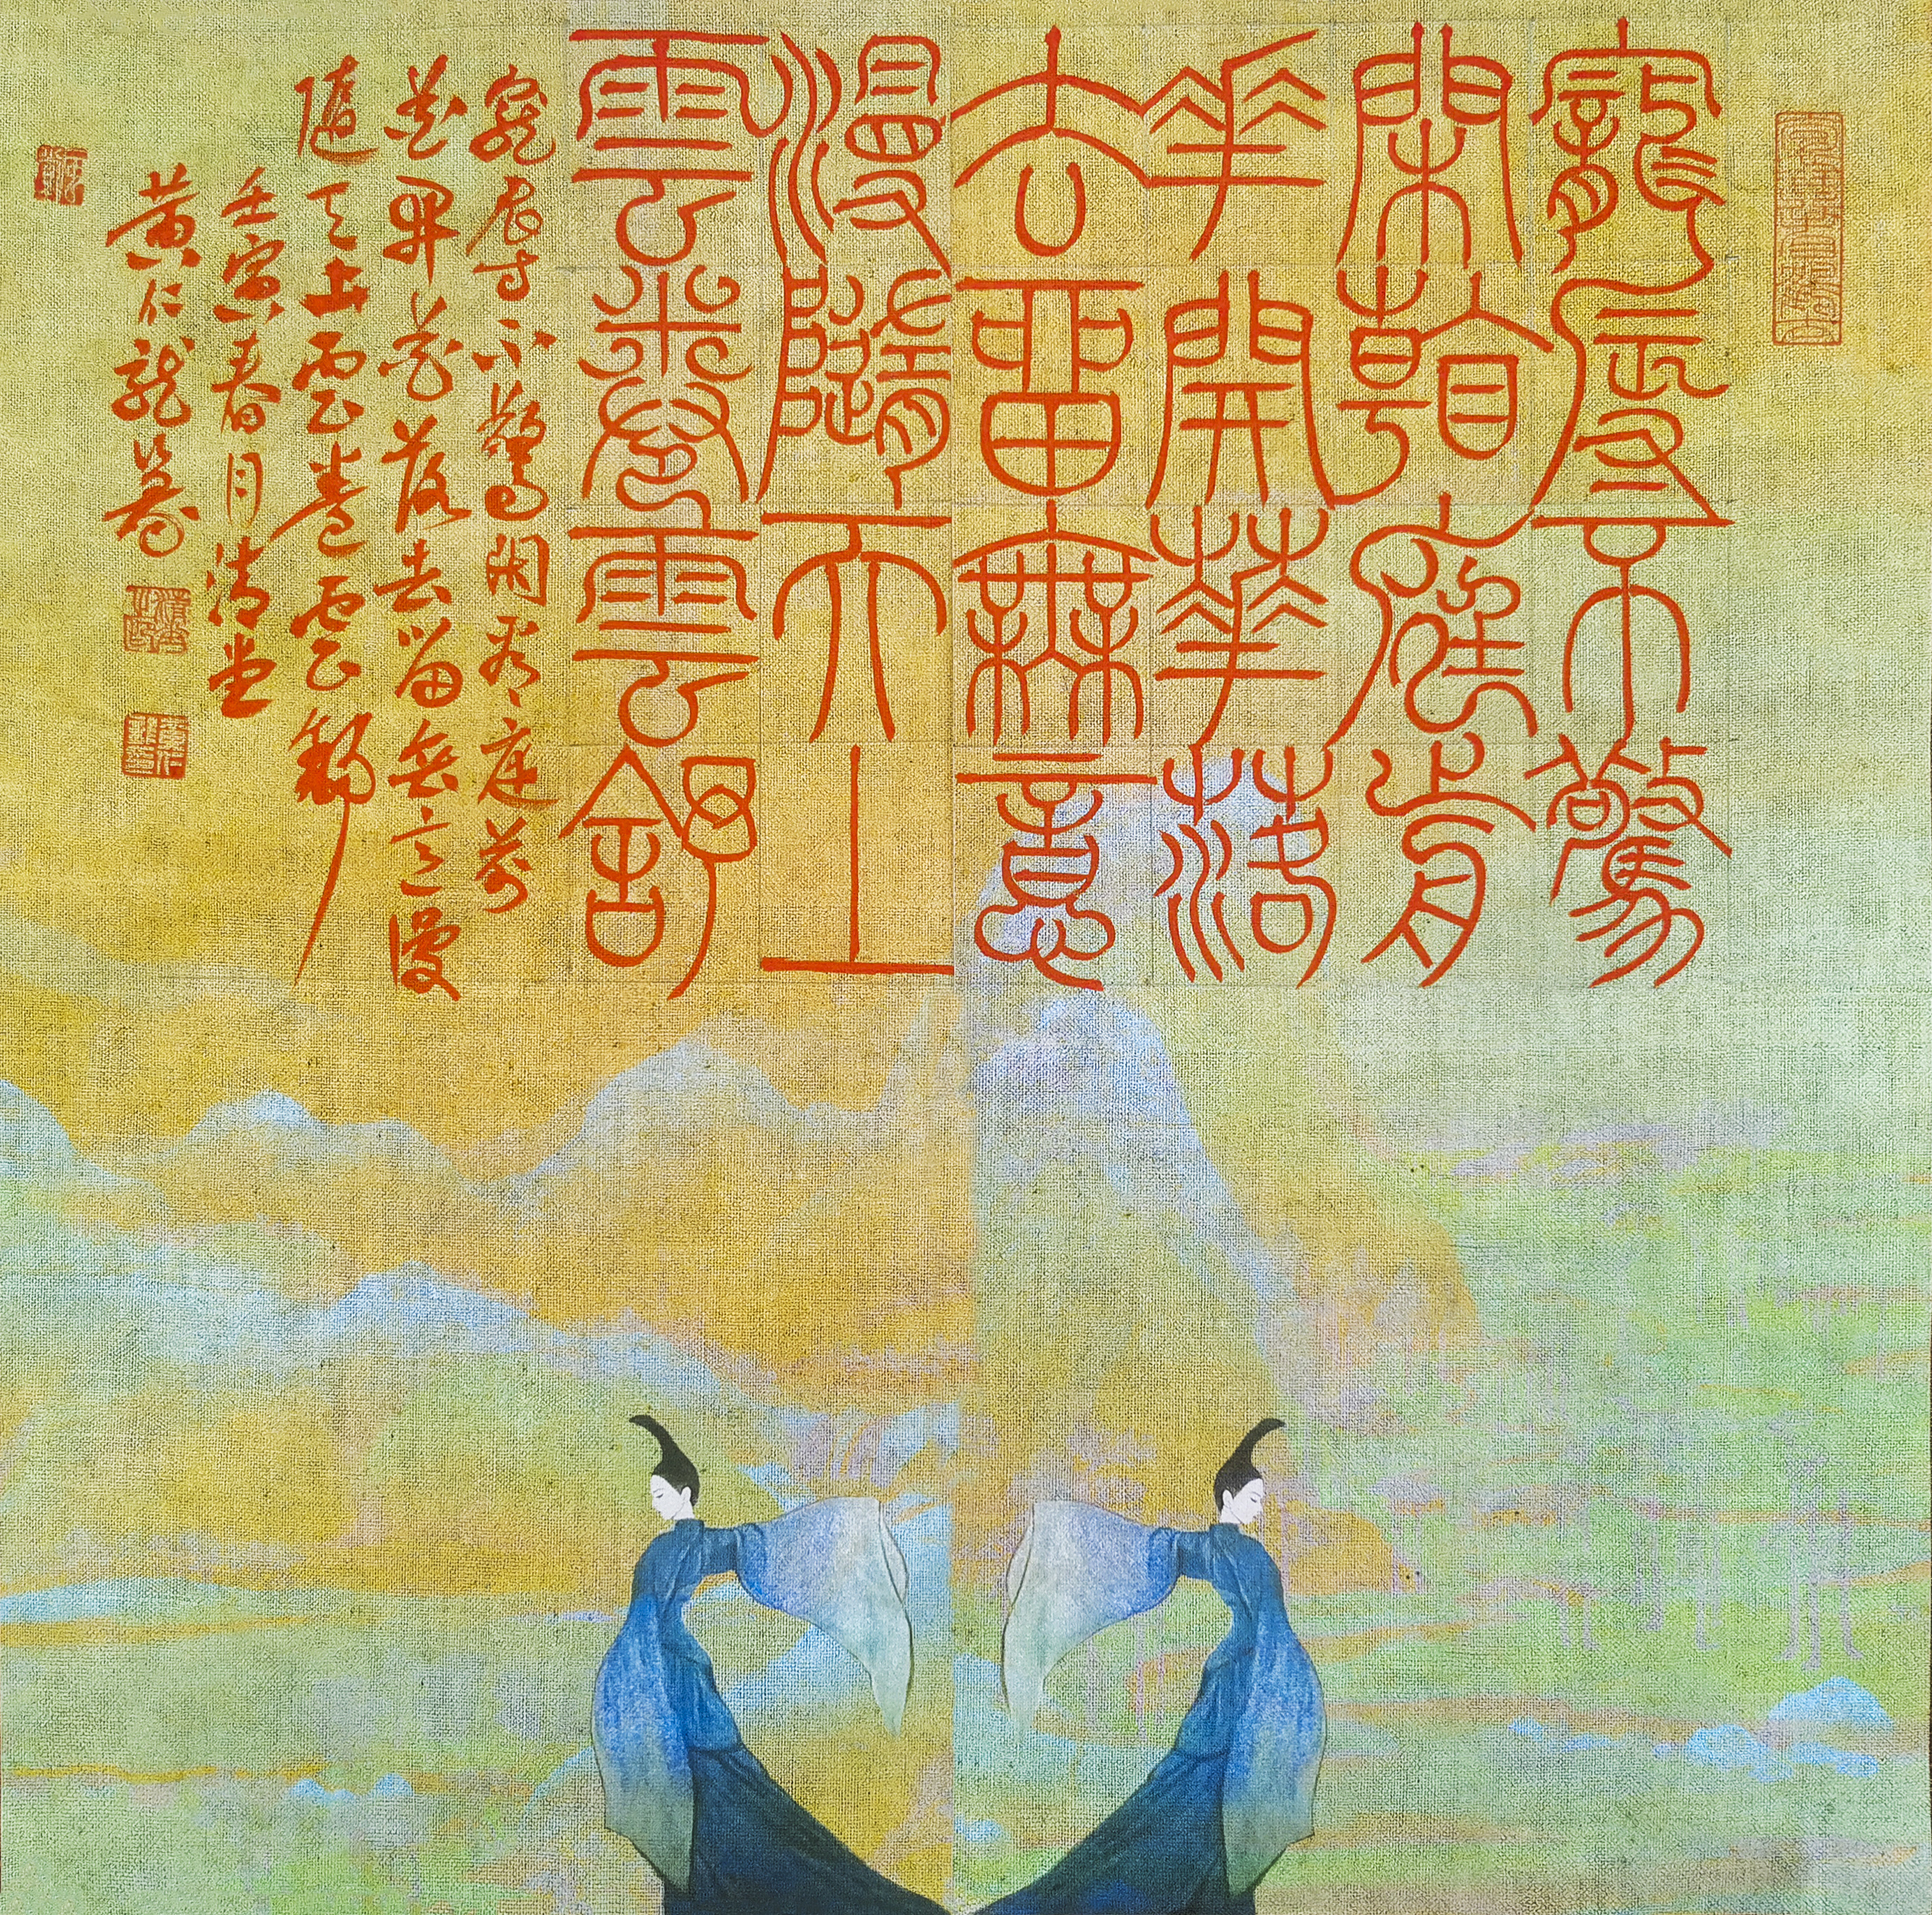 寵辱不驚
閑看庭前
華開華落
去留無意
漫隨天上
雲卷雲舒
寵辱不驚閑看庭前
花開花落去留無意漫
隨天上雲卷雲舒
壬寅春月清堂
黃仁龍篆